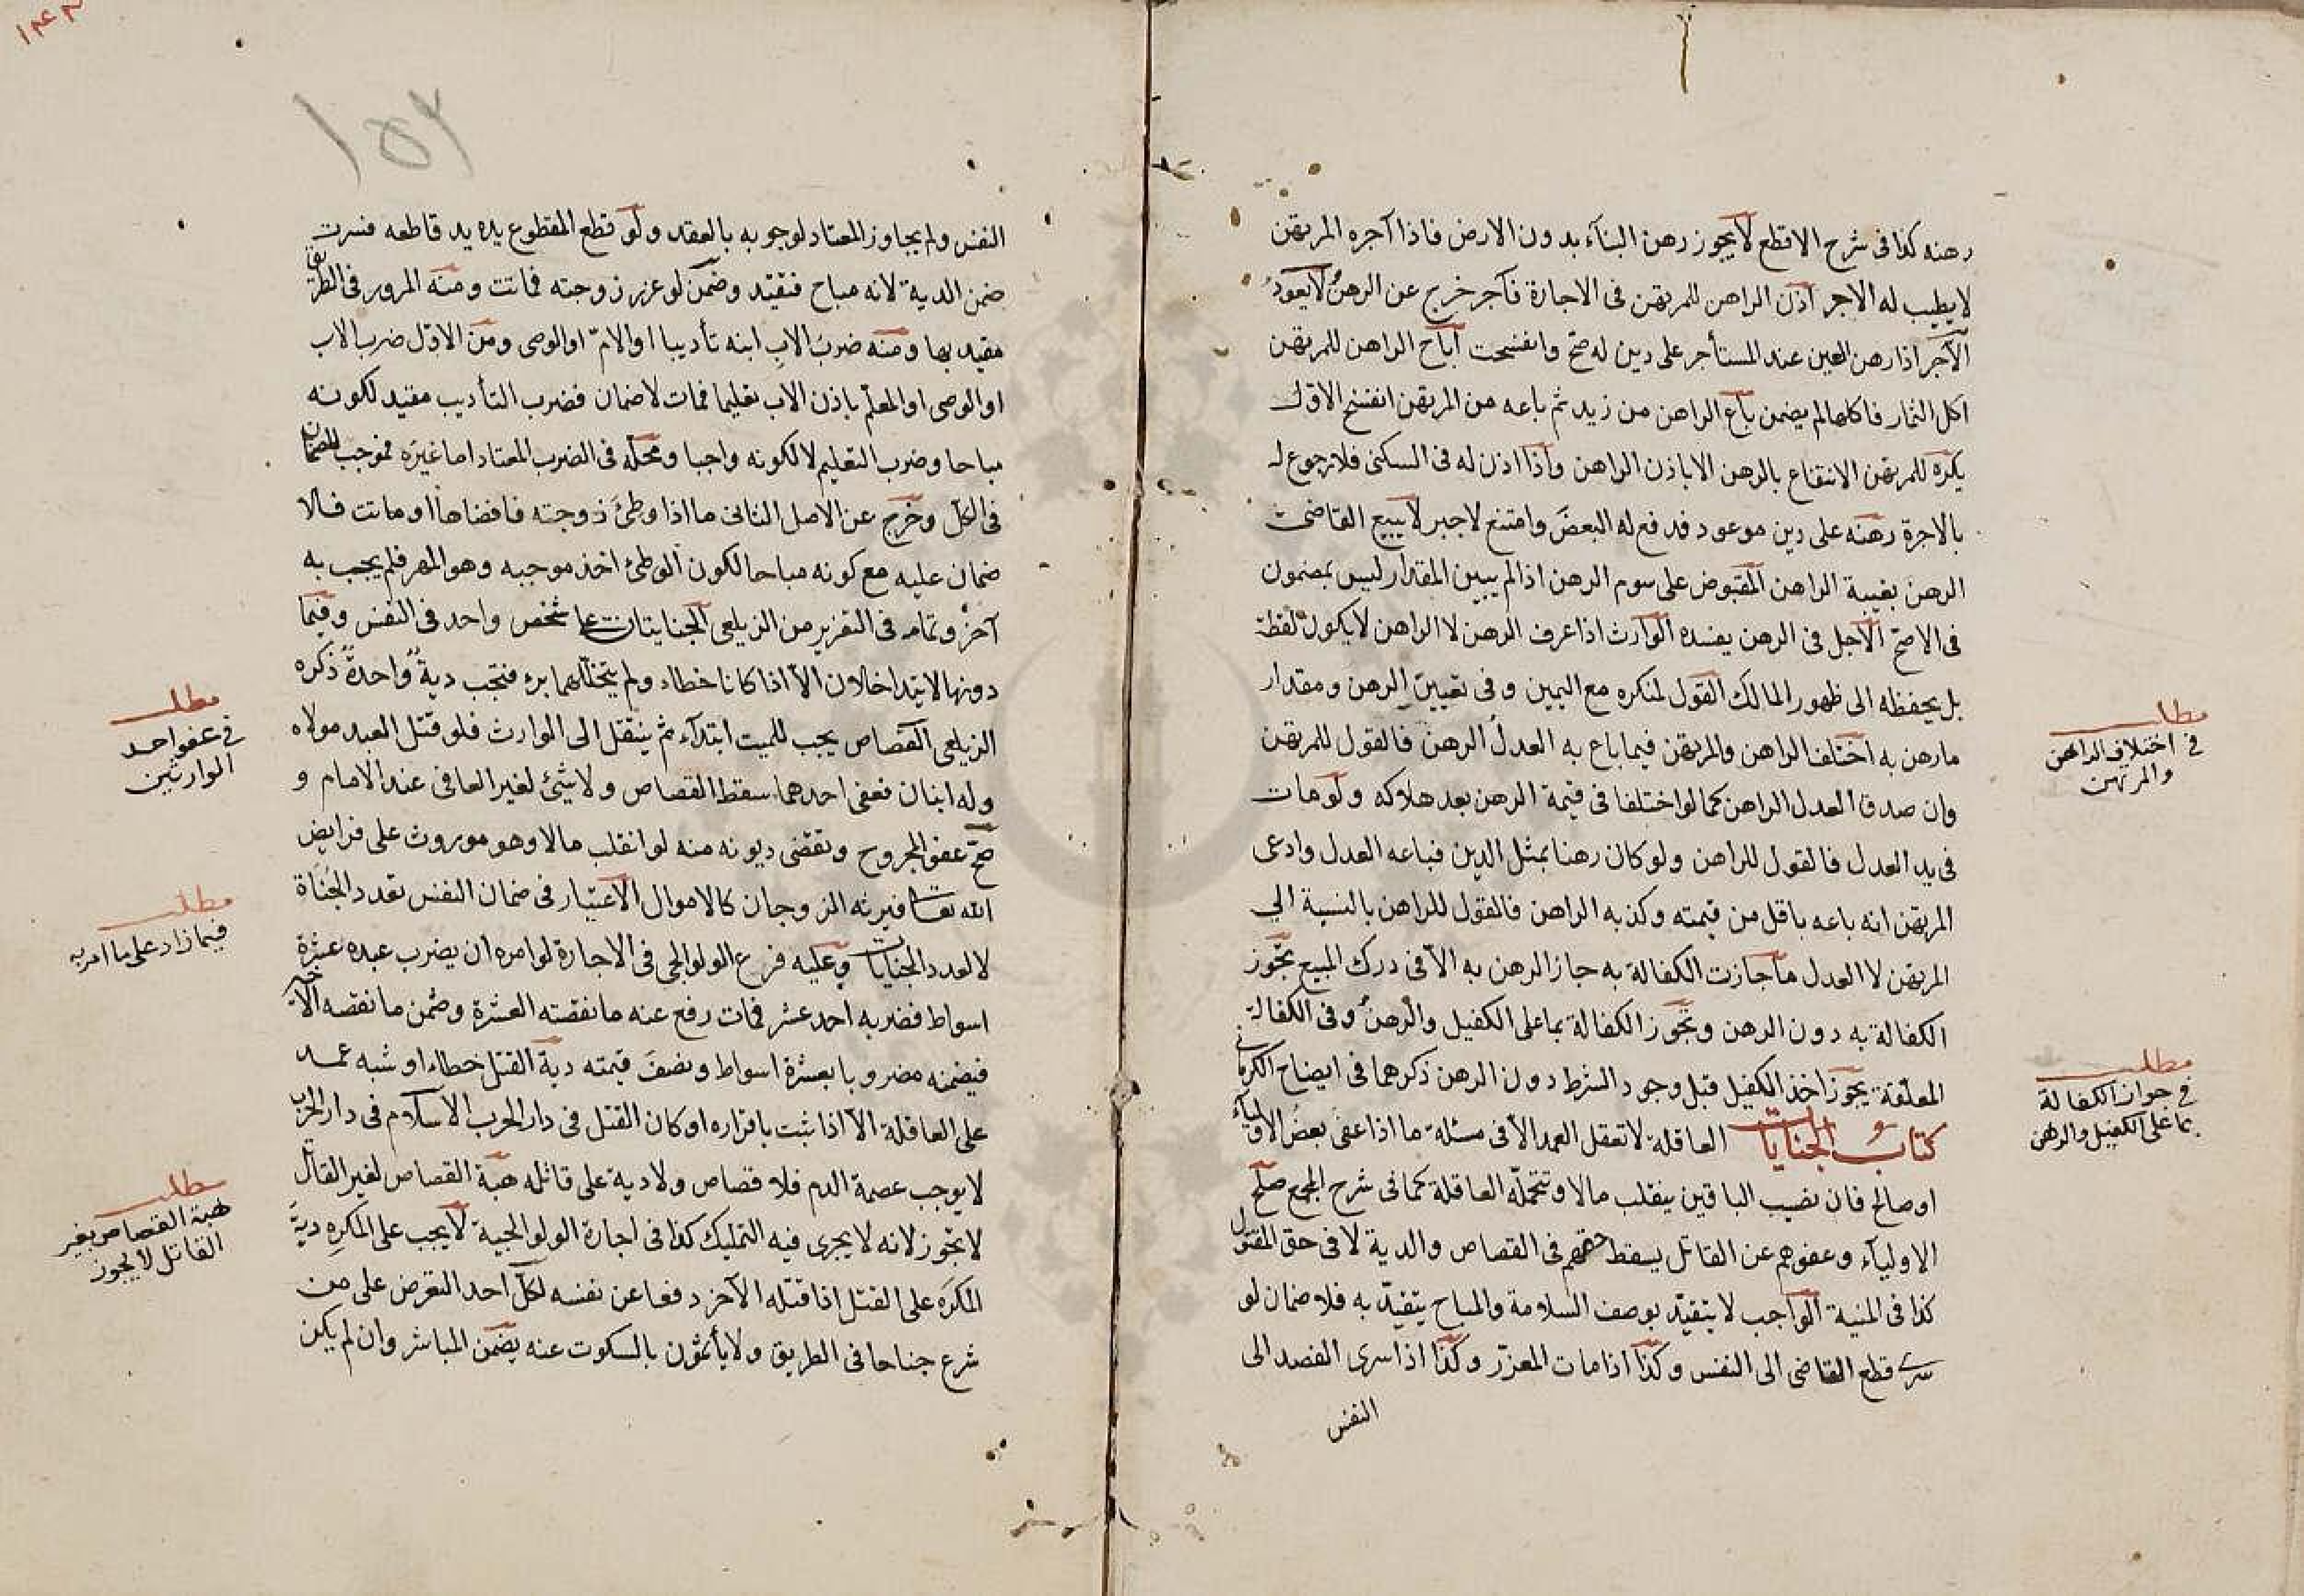 رهنه كذا فى شرح الاقطع لا يجوز رهن البنآء بدون الارض فاذا آجره المرتهن
لا يطيب له الاجر اذن الراهن للمرتهن فى الاجارة فآجر خرج عن الرهن ولا يعود
الآجر اذا رهن العين عند المستأجر على دين له صح وانفسخت اباح الراهن للمرتهن
اكل الثمار فاكلها لم يضمن باع الراهن من زيد ثم باعه من المرتهن انفسخ الاول
يكره للمرتهن الانتفاع بالرهن الا باذن الراهن واذا اذن له فى السكنى فلا رجوع له
بالاجرة رهنه على دين موعود فدفع له البعض وامتنع لا جبر لا يبيع القاضى
الرهن بغيبة الراهن المقبوض على سوم الرهن اذا لم يبين المقدار ليس بمضمون
فى الاصح الاجل فى الرهن يفسده الوارث اذا عرف الرهن لا الراهن لا يكون لقطة
بل يحفظه الى ظهور المالك القول لمنكره مع اليمين وفى تعيين الرهن ومقدار
ما رهن به اختلف الراهن والمرتهن فيما باع به العدل الرهن فالقول للمرتهن
وان صدق العدل الراهن كما لو اختلفا فى قيمة الرهن بعد هلاكه ولو مات
فى يد العدل فالقول للراهن ولو كان رهنا بمثل الدين فباعه العدل وادعى
المرتهن انه باعه باقل من قيمته وكذبه الراهن فالقول للراهن بالنسبة الى
المرتهن لا العدل ما جازت الكفالة به جاز الرهن به الا فى درك المبيع تجوز
الكفالة به دون الرهن وتجوز الكفالة بما على الكفيل والرهن وفى الكفالة
المعلقة يجوز اخذ الكفيل قبل وجود الشرط دون الرهن ذكرهما فى ايضاح الكرمانى
كتاب الجنايات العاقلة لا تعقل العمد الا فى مسئلة ما اذا عفى بعض الاوليآء
او صالح فان نصيب الباقين ينقلب مالا وتتحمله العاقلة كما فى شرح المجمع صلح
الاوليآء وعفوهم عن القاتل يسقط حقهم فى القصاص والدية لا فى حق المقتول
كذا فى المنية الواجب لا يتقيد بوصف السلامة والمباح يتقيد به فلا ضمان لو
سرى قطع القاضى الى النفس وكذا اذا مات المعزر وكذا اذا سرى الفصد الى
النفس
مطلب
فى اختلاف الراهن
والمرتهن
مطلب
فى جواز الكفالة
بما على الكفيل والرهن
١٥٦
النفس ولم يجاوز المعتاد لوجوبه بالعقد ولو قطع المقطوع يده يد قاطعه فسرت
ضمن الدية لانه مباح فتقيد وضمن لو عزر زوجته فماتت ومنه المرور فى الطريق
مقيد بها ومنه ضرب الاب ابنه تأديبا او الام او الوصى ومن الاول ضرب الاب
او الوصى او المعلم باذن الاب تعليما فمات لا ضمان فضرب التأديب مقيد لكونه
مباحا وضرب التعليم لا لكونه واجبا ومحله فى الضرب المعتاد اما غيره فموجب للضمان
فى الكل وخرج عن الاصل الثانى ما اذا وطئ زوجته فافضاها او ماتت فلا
ضمان عليه مع كونه مباحا لكون الوطئ اخذ موجبه وهو المهر فلم يجب به
آخر وتمامه فى التعزير من الزيلعى الجنايتان على شخص واحد فى النفس وفيما
دونها لا يتداخلان الا اذا كانا خطاء ولم يتخللهما برء فتجب دية واحدة ذكره
الزيلعى القصاص يجب للميت ابتدآء ثم ينتقل الى الوارث فلو قتل العبد مولاه
وله ابنان فعفى احدهما سقط القصاص ولا شئ لغير العافى عند الامام و
صح عفو المجروح وتقضى ديونه منه لو انقلب مالا وهو موروث على فرايض
الله تعالى فيرثه الزوجان كالاموال الاعتبار فى ضمان النفس تعدد الجناة
لا لعدد الجنايات وعليه فرع الولوالجى فى الاجارة لو امره ان يضرب عبده عشرة
اسواط فضربه احد عشر فمات رفع عنه ما نقصته العشرة وضمن ما نقصه الآخر
فيضمنه مضروبا بعشرة اسواط ونصف قيمته دية القتل خطاء او شبه عمد
على العاقلة الا اذا ثبت باقراره او كان القتل فى دار الحرب الاسلام فى دار الحرب
لا يوجب عصمة الدم فلا قصاص ولا دية على قاتله هبة القصاص لغير القاتل
لا تجوز لانه لا يجرى فيه التمليك كذا فى اجارة الولوالجية لا يجب على المكره دية
المكره على القتل اذا قتله الآخر دفعا عن نفسه لكل احد التعرض على من
شرع جناحا فى الطريق ولا يأثمون بالسكوت عنه يضمن المباشر وان لم يكن
مطلب
فى عفو احد
الوارثين
مطلب
فيما زاد على ما امر به
مطلب
هبة القصاص بغير
القاتل لا يجوز